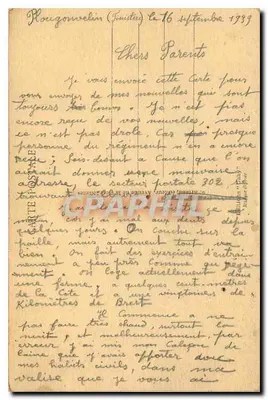 Plougonvelin (Finistère) le 16 septembre 1939
Chers Parents
Je vous envoie cette Carte pour
vous envoyer de mes nouvelles qui sont
toujours bonnes. Je n'ai pas
encore reçu de vos nouvelles, mais
ce n'est pas drole, Car presque
personne du régiment n'en a encore
reçu ; Soi-disant a Cause que l'on
aurait donner une mauvaise
adresse, le secteur postale 302 se
trouvant
CARTE POSTALE
CPARAMA
.COM
car j'ai mal aux dents depuis
quelques jours. On couche sur la
paille, mais autrement tout va
bien. On fait des exercices d'entrai-
nement a peu près comme au régi-
ment ; on loge actuellement dans
une ferme, a quelques cent mètres
de la Cote et a une vingtaine de
Kilomètres de Brest.
Il Commence a ne
pas faire très chaud, surtout la
nuit, et malheureusement, par
erreur j'ai mis mon Caleçon de
laine que j'avais apporter avec
mes habits civils, dans ma
valise que je vous ai